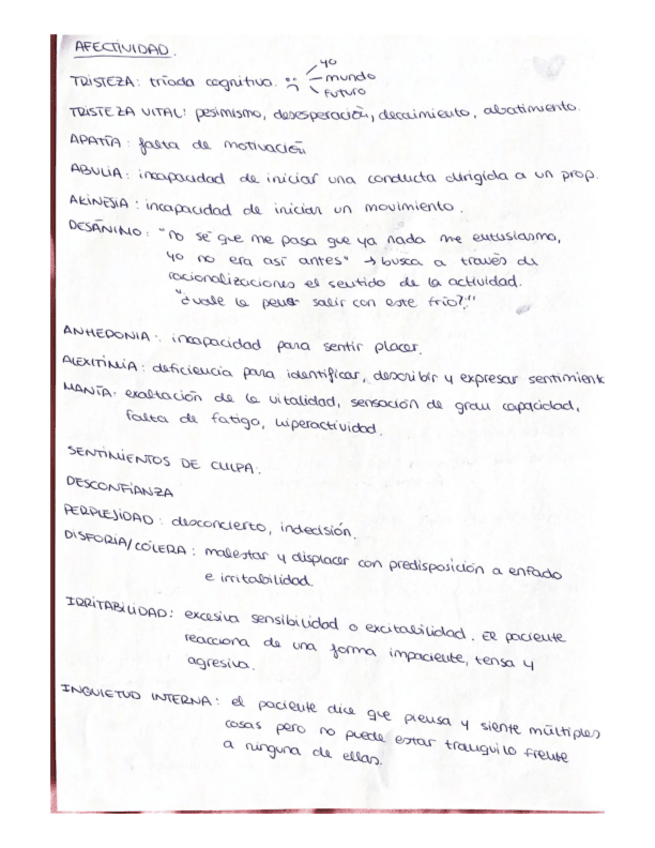 AFECTIVIDAD.
yo
TRISTEZA: tríada cognitiva. :( mundo
futuro
TRISTEZA VITAL: pesimismo, desesperación, decaimiento, abatimiento.
APATÍA: falta de motivación
ABULIA: incapacidad de iniciar una conducta dirigida a un prop.
AKINESIA: incapacidad de iniciar un movimiento.
DESÁNIMO: "no sé que me pasa que ya nada me entusiasma,
yo no era así antes" → busca a través de
racionalizaciones el sentido de la actividad.
"¿vale la pena salir con este frío?"
ANHEDONIA: incapacidad para sentir placer.
ALEXITIMIA: deficiencia para identificar, describir y expresar sentimient
MANÍA: exaltación de la vitalidad, sensación de gran capacidad,
falta de fatiga, hiperactividad.
SENTIMIENTOS DE CULPA:
DESCONFIANZA
PERPLEJIDAD: desconcierto, indecisión.
DISFORIA/CÓLERA: malestar y displacer con predisposición a enfado
e irritabilidad.
IRRITABILIDAD: excesiva sensibilidad o excitabilidad. El paciente
reacciona de una forma impaciente, tensa y
agresiva.
INQUIETUD INTERNA: el paciente dice que piensa y siente múltiples
cosas pero no puede estar tranquilo frente
a ninguna de ellas.